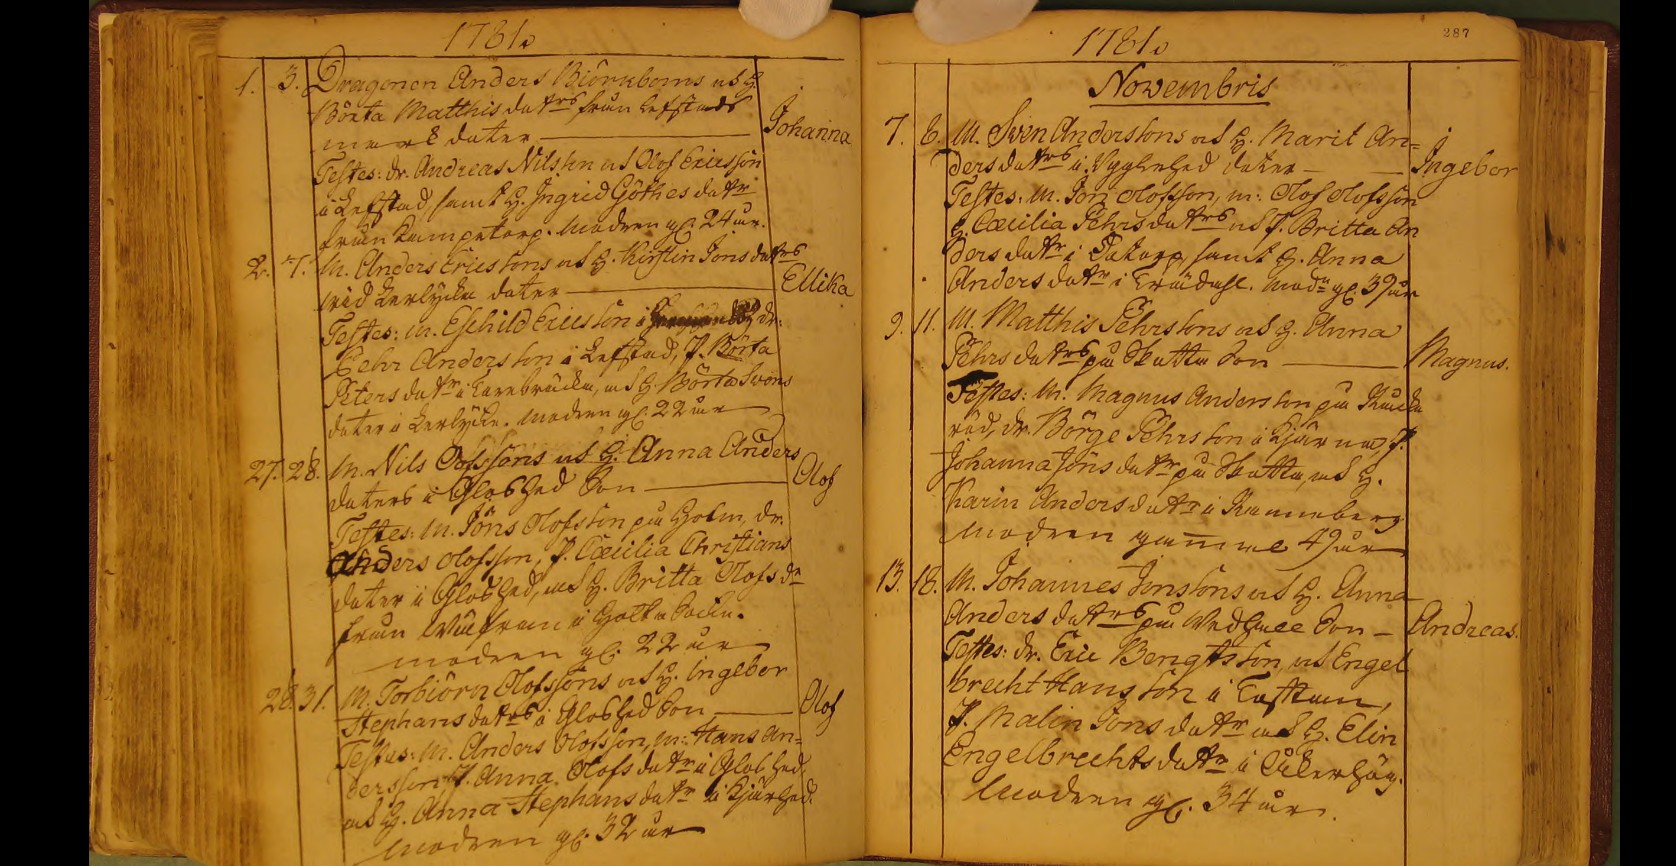 1781.
1. 3. Dragonen Anders Biörkboms och H.
Börta Matthisdatrs från Lefstads
dater
Johanna
Testes: dr. Andreas Nilsson och Olof Ericsson
i Lefstad, samt H. Ingrid Göthes datr
från Kampetorp. Modren gl. 24 år.
2. 7. M. Anders Ericssons och H. Kerstin Jons datrs
vid Kerlycke dater
Ellika
Testes: M. Eschild Ericsson i dr.
Pehr Andersson i Lefstad, P. Börta
Peters datr i och H. Börta Svens
dater i Kerlycke. Modren gl. 22 år
27. 28. M. Nils Olofssons och H. Anna Anders
daters i Glöshed Son
Olof
Testes: M. Jöns Olofsson på Holm, dr.
Anders Olofsson, P. Cæcilia Christians
dater i Glöshed, och H. Britta Olofs dr
från
modren gl. 22 år
28. 31. M. Torbiörn Olofssons och H. Ingebor
Stephans datrs i Glöshed Son
Olof
Testes: M. Anders Olofsson, M: Hans An=
dersson, P. Anna Olofs datr i Glöshed,
och H. Anna Stephans datr i Kjärhed.
modren gl. 32 år
287
1781.
Novembris
7. 8. M. Sven Anderssons och H. Marit An=
ders datrs i dater
Ingebor
Testes: M. Jon Olofsson, m: Olof Olofsson
H. Cæcilia Pehrs datrs och P. Britta An
ders datr i samt H. Anna
Anders datr i modn gl. 39 år
9. 11. M. Matthis Pehrssons och H. Anna
Pehrs datrs på Skatte Son
Magnus.
Testes: M. Magnus Andersson på
röd, dr. Börge Pehrsson i Kjärna, P.
Johanna Jöns datr på Skatte, och H.
Karin Anders datr i Ranneberg
Modren gamme 49 år
13. 18. M. Johannes Jonssons och H. Anna
Anders datrs på Son
Andreas.
Testes: dr. Eric Bengtsson, och Engel
brecht Hansson i
P. Malin Jons datr och H. Elin
Engelbrechts datr i Åkerhög.
Modren gl. 34 år.